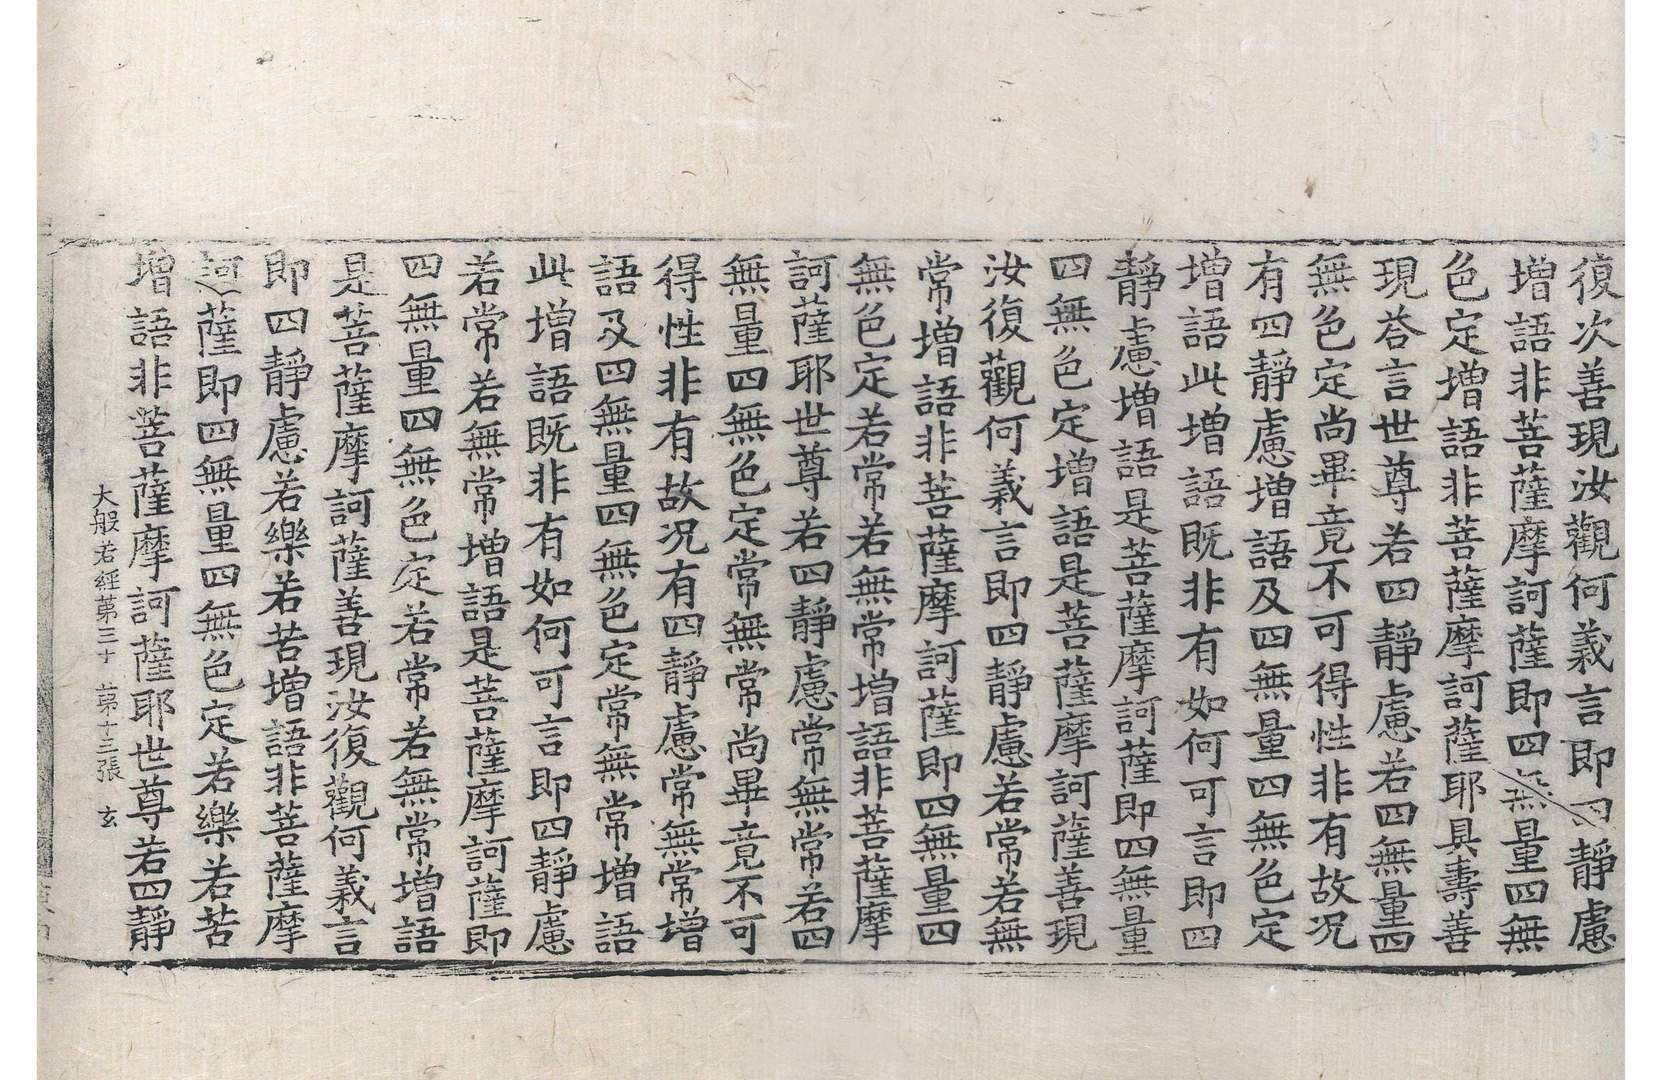 復次善現汝觀何義言即四靜慮
增語非菩薩摩訶薩即四無量四無
色定增語非菩薩摩訶薩耶具壽善
現荅言世尊若四靜慮若四無量四
無色定尚畢竟不可得性非有故况
有四靜慮增語及四無量四無色定
增語此增語既非有如何可言即四
靜慮增語是菩薩摩訶薩即四無量
四無色定增語是菩薩摩訶薩善現
汝復觀何義言即四靜慮若常若無
常增語非菩薩摩訶薩即四無量四
無色定若常若無常增語非菩薩摩
訶薩耶世尊若四靜慮常無常若四
無量四無色定常無常尚畢竟不可
得性非有故况有四靜慮常無常增
語及四無量四無色定常無常增語
此增語既非有如何可言即四靜慮
若常若無常增語是菩薩摩訶薩即
四無量四無色定若常若無常增語
是菩薩摩訶薩善現汝復觀何義言
即四靜慮若樂若苦增語非菩薩摩
訶薩即四無量四無色定若樂若苦
增語非菩薩摩訶薩耶世尊若四靜
大般若經第三十 第十三張 玄